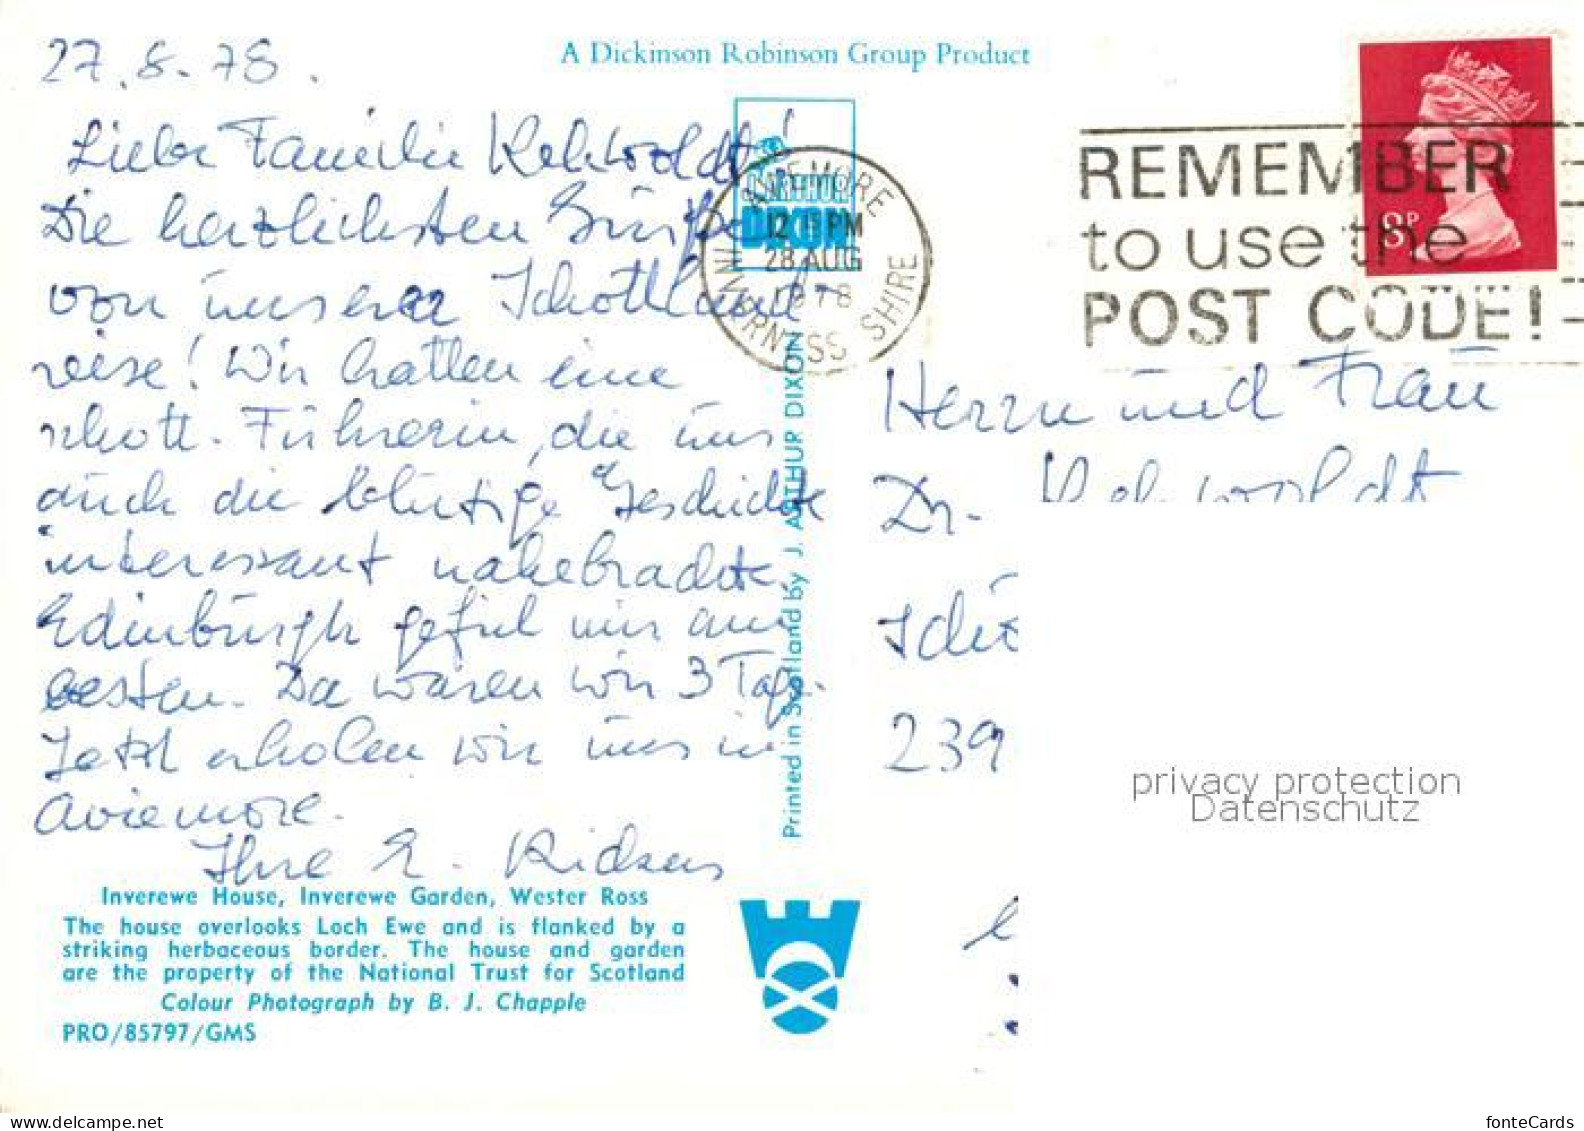 27.8.78.
A Dickinson Robinson Group Product
Liebe Familie Rehwoldt!
Die herzlichsten Grüße
von unserer Schottland
reise! Wir hatten eine
schott. Führerin, die uns
auch die blutige Geschichte
interessant nahebrachte.
Edinburgh gefiel mir am
besten. Da waren wir 3 Tage.
Jetzt erholen wir uns in
Aviemore.
Ihre E.
Inverewe House, Inverewe Garden, Wester Ross
The house overlooks Loch Ewe and is flanked by a
striking herbaceous border. The house and garden
are the property of the National Trust for Scotland
Colour Photograph by B. J. Chapple
PRO/85797/GMS
ARTHUR
DIXON
AVIEMORE
12 15 PM
28 AUG
1978
INVERNESS SHIRE
Printed in Scotland by J. ARTHUR DIXON
REMEMBER
to use the
POST CODE!
8P
Herrn und Frau
Dr. Rehwoldt
239
privacy protection
Datenschutz
fonteCards